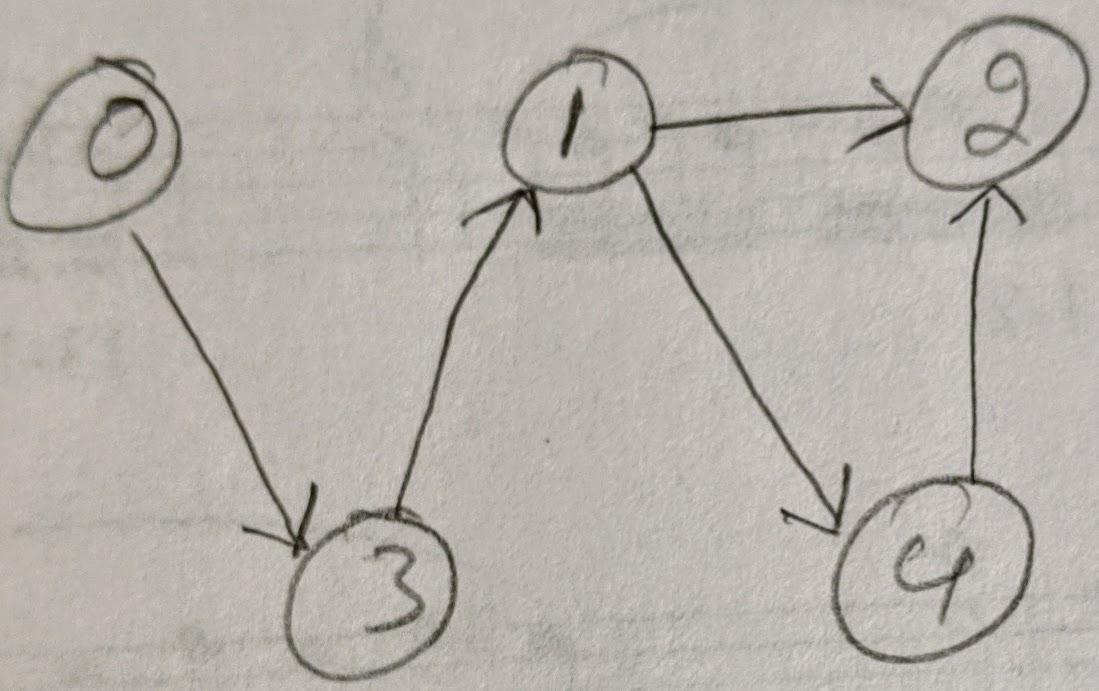 0 1 2
3 4